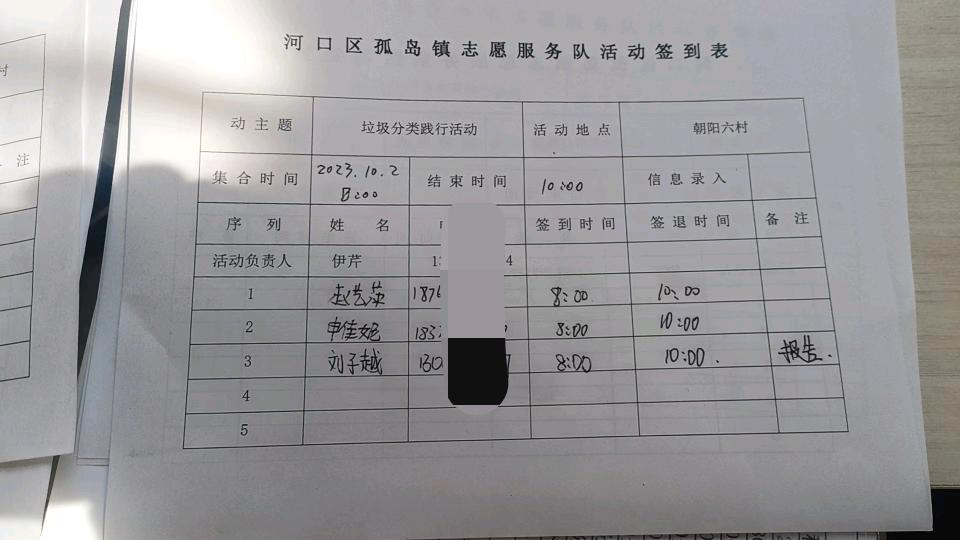 河口区孤岛镇志愿服务队活动签到表
动主题 垃圾分类践行活动 活动地点 朝阳六村
集合时间 2023.10.2 8:00 结束时间 10:00 信息录入
序列 姓名 签到时间 签退时间 备注
活动负责人 伊芹 13 4
1 187 8:00 10:00
2 申佳妮 183 8:00 10:00
3 刘子越 130 8:00 10:00. 报告.
4
5
村
注